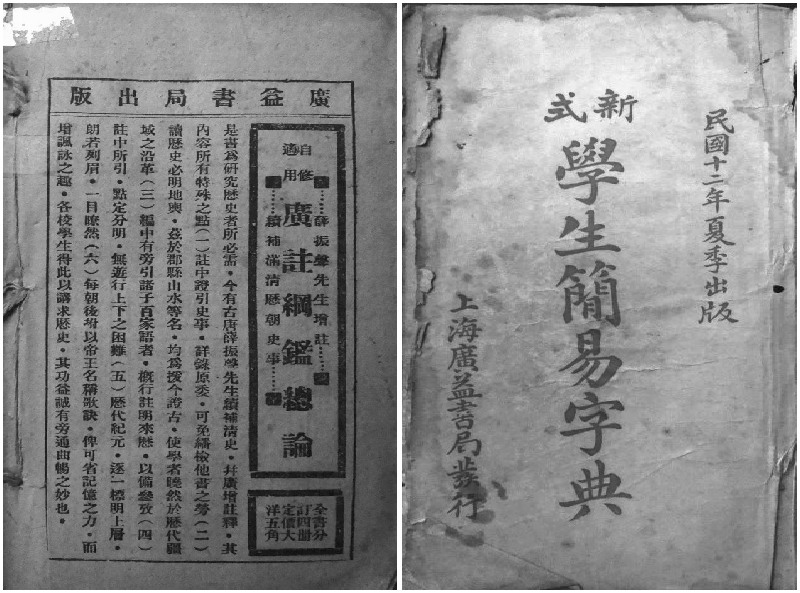 廣益書局出版
自修適用
薛振聲先生增註
廣註綱鑑總論
續補滿清歷朝史事
全書分
訂四冊
定價大
洋五角
是書爲研究歷史者所必需·今有古唐薛振聲先生續補清史·幷廣增註釋·其
內容所有特殊之點(一)註中證引史事·詳錄原委·可免繙檢他書之勞(二)
讀歷史必明地輿·茲於郡縣山水等名·均爲援今證古·使學者曉然於歷代疆
域之沿革(三)編中有旁引諸子百家語者·概行註明來歷·以備參攷(四)
註中所引·點定分明·無遊行上下之困難(五)歷代紀元·逐一標明上層·
朗若列眉·一目瞭然(六)每朝後坿以帝王名稱歌訣·俾可省記憶之力·而
增諷詠之趣·各校學生得此以講求歷史·其功益誠有旁通曲暢之妙也·
民國十二年夏季出版
新式
學生簡易字典
上海廣益書局發行